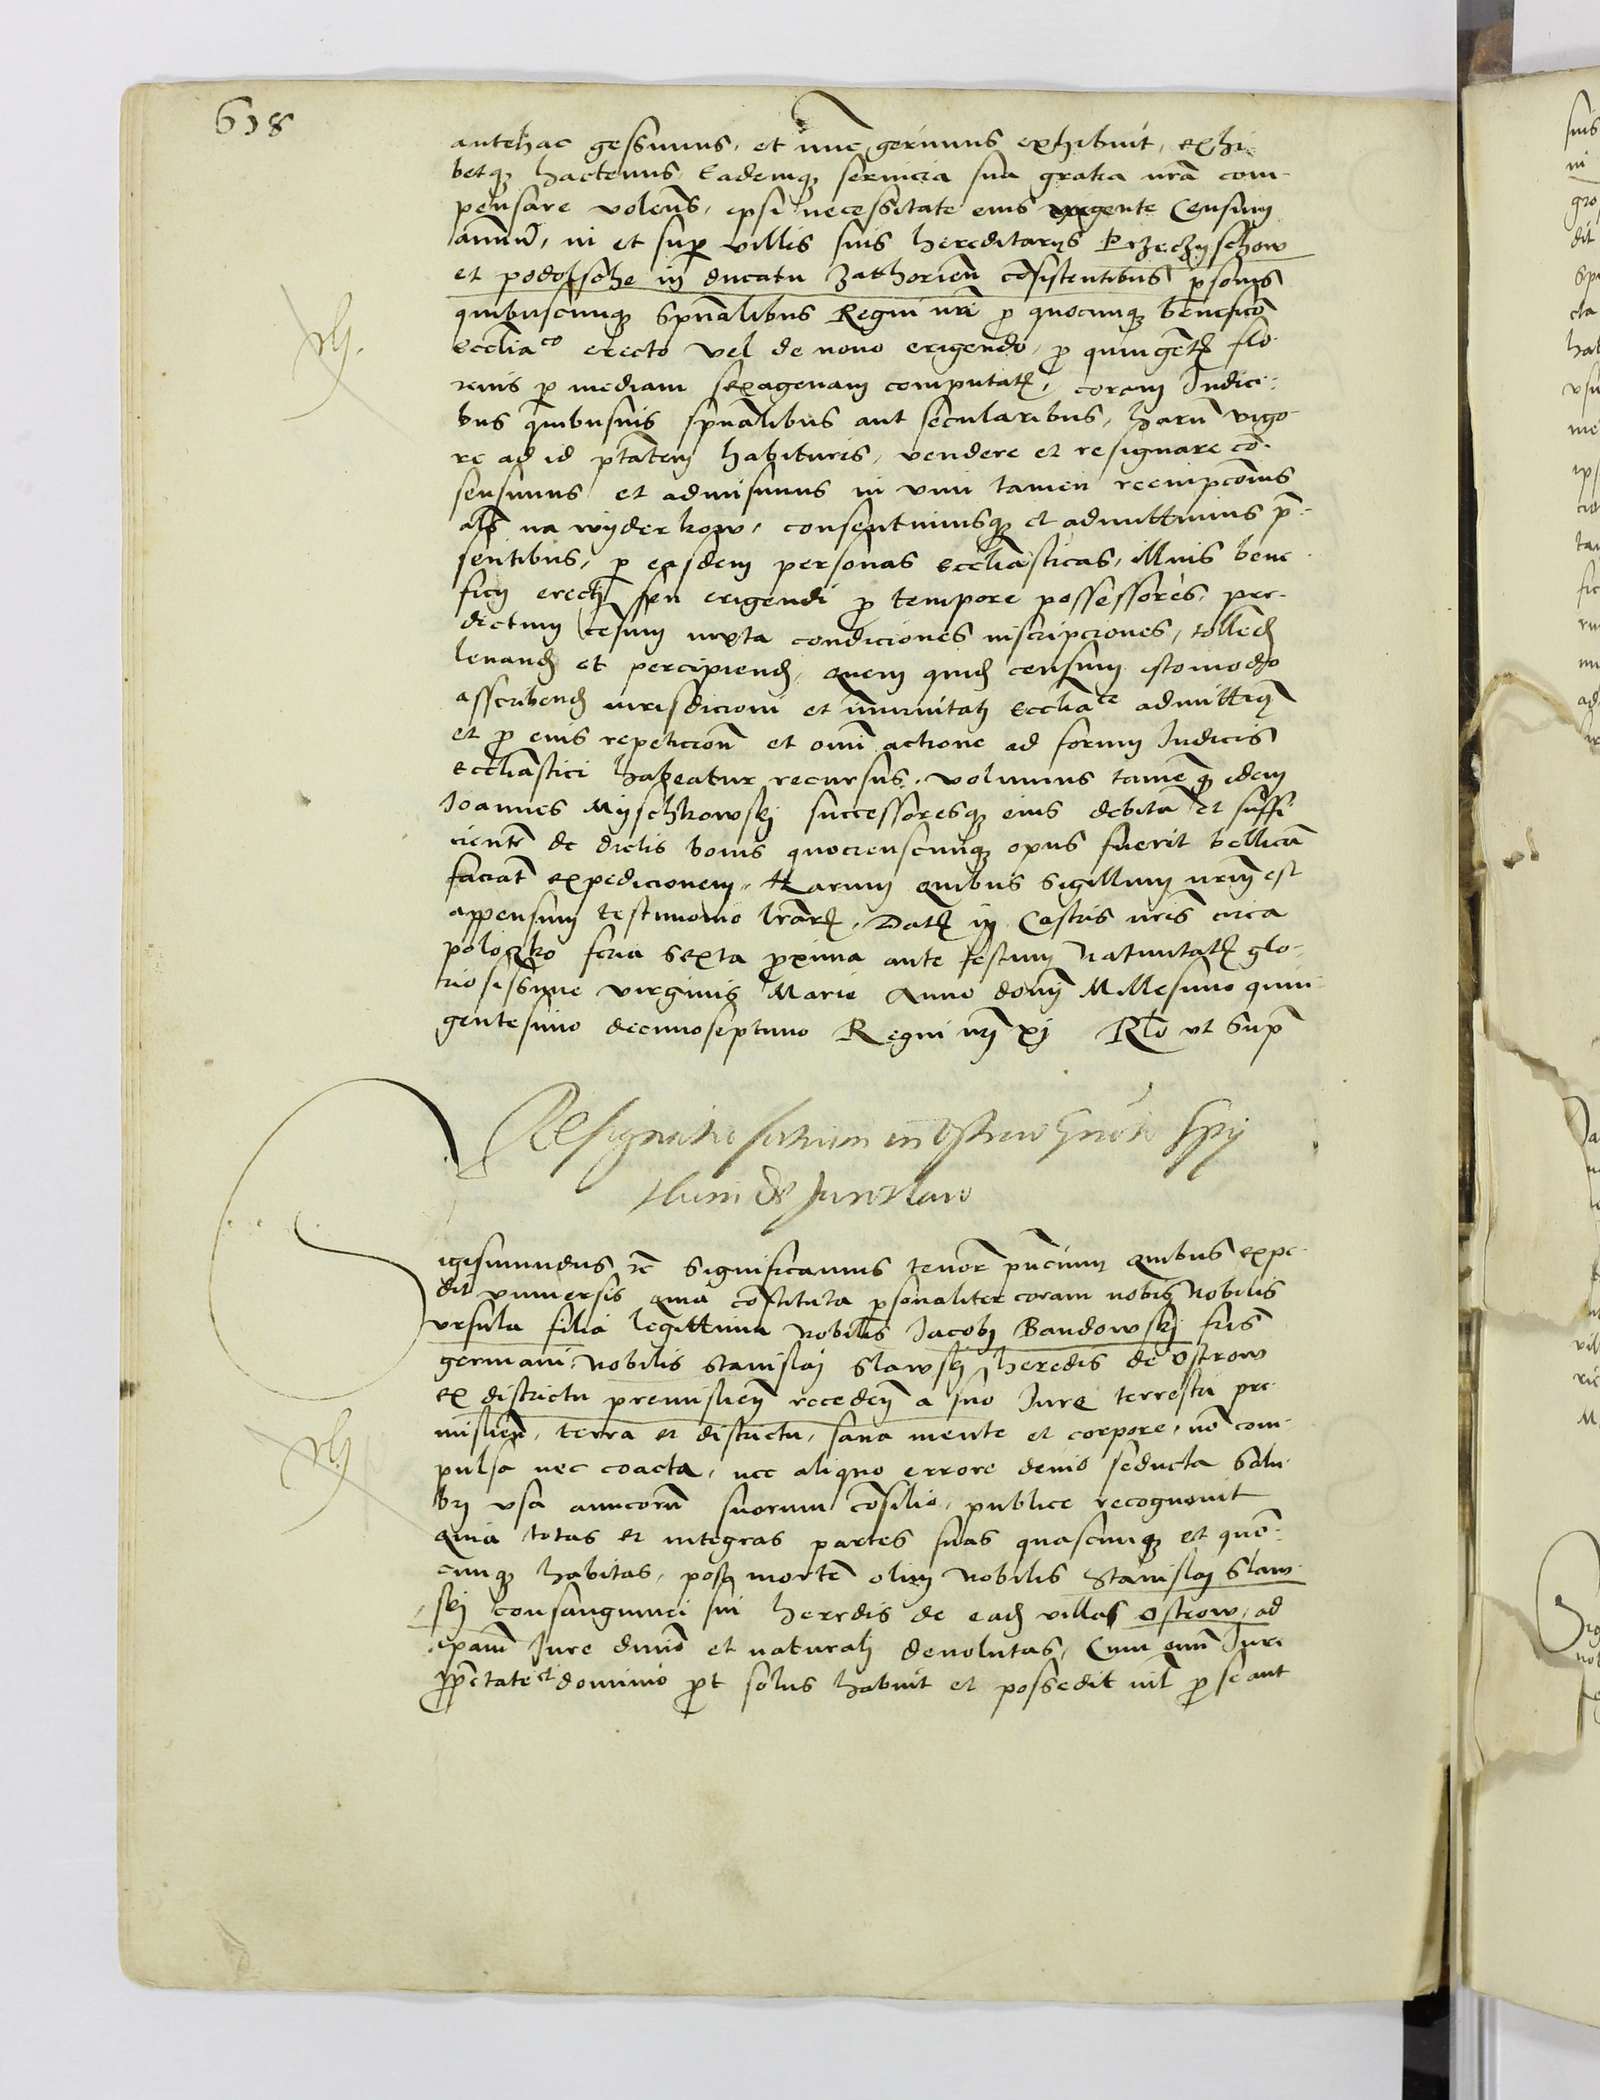 618
antehac gessimus, et nunc gerimus exhibuit, exhi-
betq hactenus, Eademq servicia sua gratia nrã com-
pensare volens, ipsi necessitate eius urgente Censum
annuũ, in et sup villis suis hereditarys Przeczyschow
et podolsche in ducatu Zathorieñ cõsistentibus psonis
quibuscunq spũalibus Regni nri p quocunq beneficio
eccliaco erecto vel de novo erigendo, p quingẽtis flo-
renis p mediam sexagenam computatis, coram Iudici-
bus quibusvis spũalibus aut secularibus, harũ vigo-
re ad id ptãtem habituris, vendere et resignare cõ-
sensimus et admisimus in vim tamen reempcõnis
als na wyderkow, consentimusq et admittimus p-
sentibus, p easdem personas eccliasticas, illius bene
ficy erecti seu erigendi p tempore possessores, pre-
dictum cẽsum iuxta condiciones inscripciones, tollend
levand et percipiend, quem quid censum isto modo
asscribend iurisdicioni et imunitati ecclãce admittimq
et p eius repeticione et omni actione ad forum Iudicis
eccliastici habeatur recursus, volumus tamẽ q idem
Ioannes Myschkowski successoresq eius debitã et suffi
cientẽ de dictis bonis quocienscunq opus fuerit bellicã
faciat expedicionem, Harum quibus Sigillum nrũm est
appensum testimonio lrarũ, Datũ in Castris nris circa
poloczko feria sexta pxima ante festum Nativitatis glo-
riosissime virginis Marie Anno domi Millesimo quin
gentesimo decimoseptimo Regni nri xj Rlõ ut Supã
Resignatio sortium in Ostrow Gnõso Spy
thconi de Jaroslaw
igismundus rc Significamus tenore pñcium quibus expe-
dit universis quia cõstituta psonaliter coram nobis Nobilis
ursula filia legittima Nobilis Iacobi Bandowski fris
germani Nobilis Stanislai Slawski heredis de Ostrow
ex districtu premislieñ recedeñ a suo Iure terrestri pre-
mislieñ, terra et districtu, sana mente et corpore, nõ com-
pulsa nec coacta, nec aliquo errore devio seducta Salu
bri usa amicorũ suorum cõsilio, publice recognovit
quia totas et integras partes suas quascunq et quõ-
cunq habitas, post mortẽ olim Nobilis Stanislai Slaw-
ski consanguinei sui heredis de ead villa Ostrow, ad
ipsam Iure divino et naturali devolutas, Cum omni Iure
pprietate et dominio put solus habuit et possedit nil p se aut